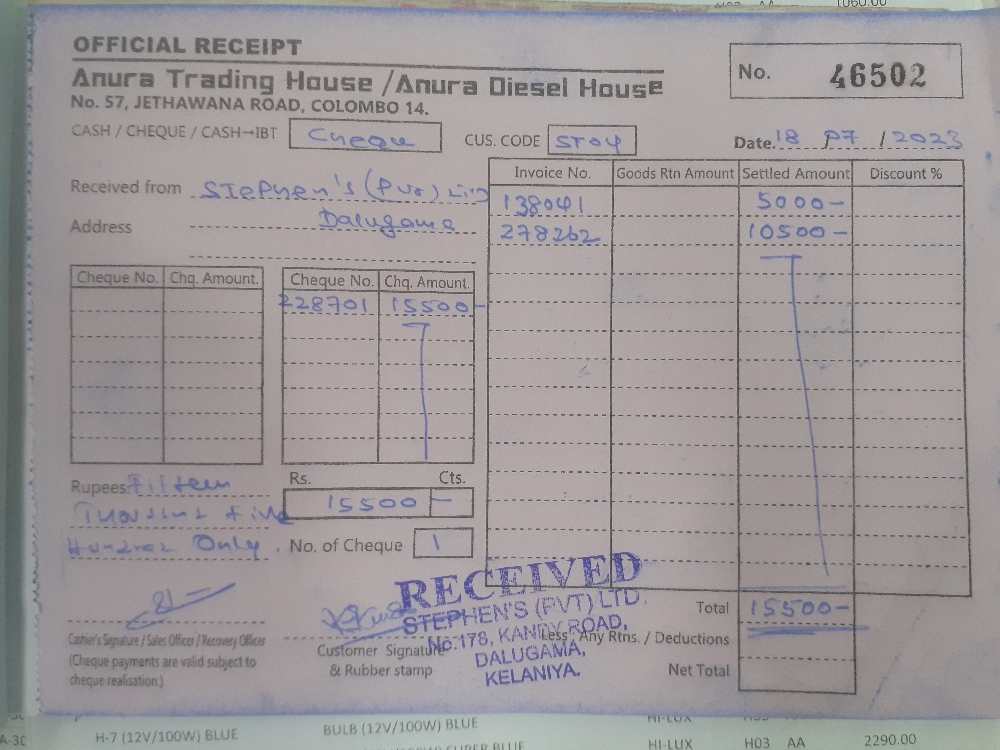 1060.00
OFFICIAL RECEIPT
Anura Trading House /Anura Diesel House
No. 57, JETHAWANA ROAD, COLOMBO 14.
No. 46502
CASH / CHEQUE / CASH→IBT Cheque CUS. CODE ST04 Date. 18 07 / 2023
Received from Stephen's (Pvt) Ltd
Address Dalugama
Invoice No. Goods Rtn Amount Settled Amount Discount %
138041 5000-
278262 10500-
Cheque No. Chq. Amount. Cheque No. Chq. Amount.
228701 15500-
Rs. Cts.
15500 -
Rupees Fifteen
Thousand Five
Hundred Only.
No. of Cheque 1
RECEIVED
STEPHEN'S (PVT) LTD.
No.178, KANDY ROAD,
DALUGAMA,
KELANIYA.
Total 15500-
Less Any Rtns. / Deductions
Net Total
Cashier's Signature / Sales Officer / Recovery Officer
(Cheque payments are valid subject to
cheque realisation.)
Customer Signature
& Rubber stamp
H-7 (12V/100W) BLUE BULB (12V/100W) BLUE HI-LUX H03 AA 2290.00